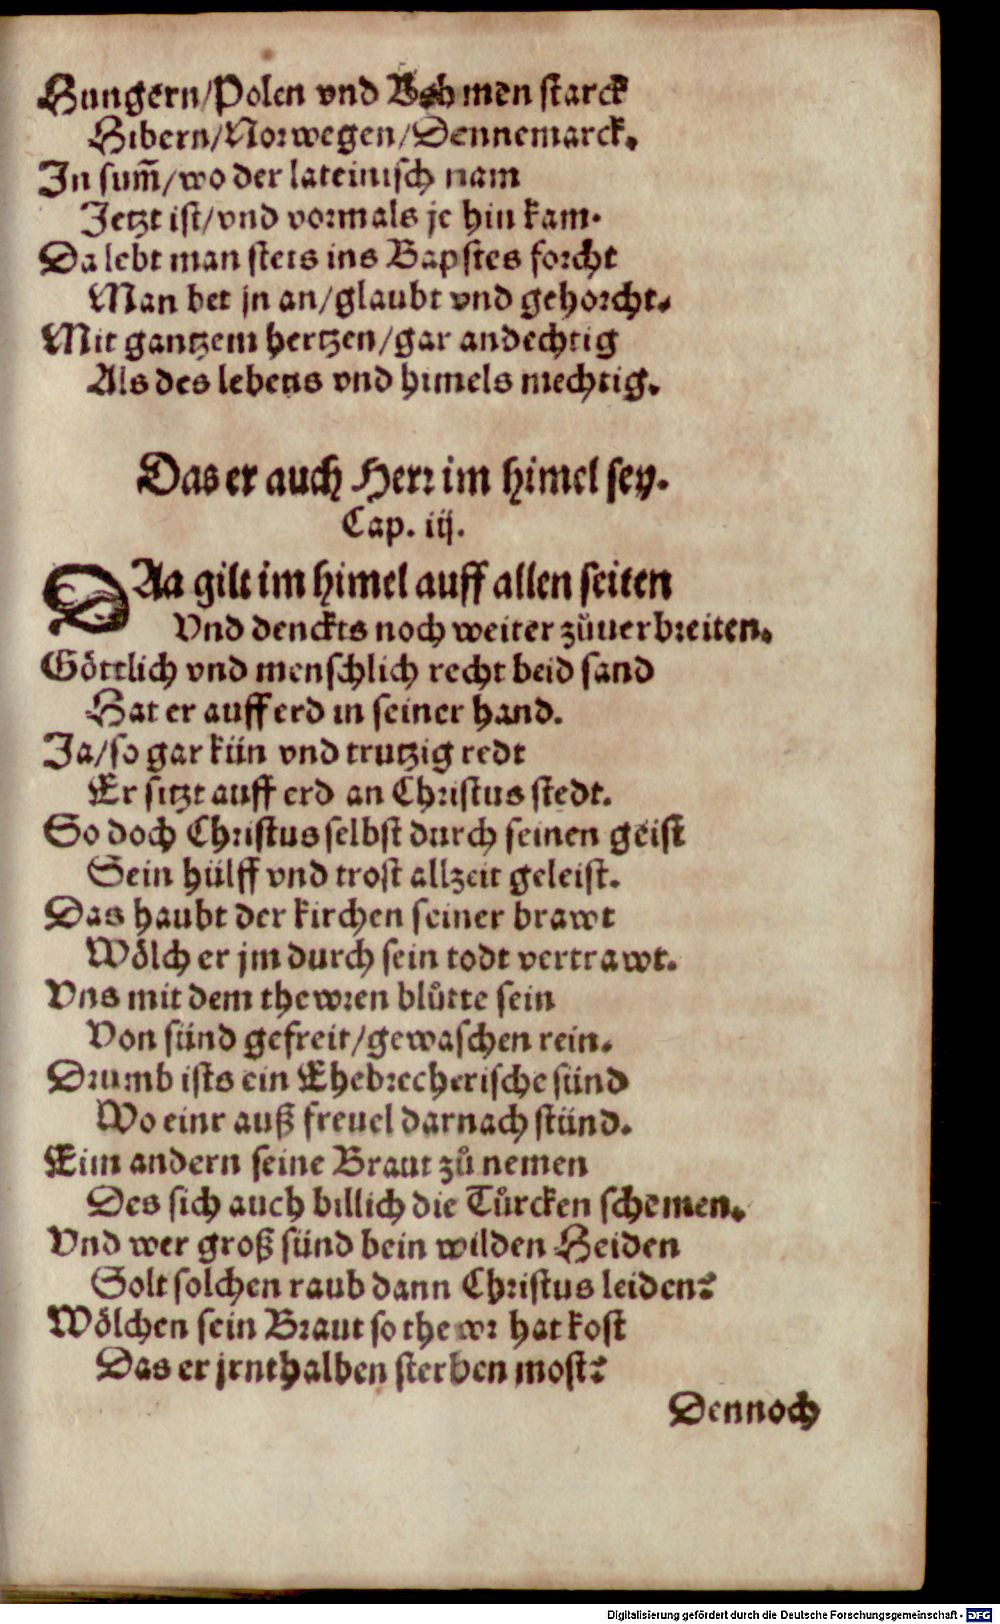 Hungern/Polen vnd Behmen starck
Hibern/Norwegen/Dennemarck.
In sum̃/wo der lateinisch nam
Jetzt ist/vnd vormals je hin kam.
Da lebt man stets ins Bapstes forcht
Man bet jn an/glaubt vnd gehorcht.
Mit gantzem hertzen/gar andechtig
Als des lebens vnd himels mechtig.
Das er auch Herr im himel sey.
Cap. iij.
DAa gilt im himel auff allen seiten
Vnd denckts noch weiter zůuerbreiten.
Göttlich vnd menschlich recht beid sand
Hat er auff erd in seiner hand.
Ja/so gar kün vnd trutzig redt
Er sitzt auff erd an Christus stedt.
So doch Christus selbst durch seinen geist
Sein hülff vnd trost allzeit geleist.
Das haubt der kirchen seiner brawt
Wölch er jm durch sein todt vertrawt.
Vns mit dem thewren blůtte sein
Von sünd gefreit/gewaschen rein.
Drumb ists ein Ehebrecherische sünd
Wo einr auß freuel darnach stünd.
Eim andern seine Braut zů nemen
Des sich auch billich die Tůrcken schemen.
Vnd wer groß sünd bein wilden Heiden
Solt solchen raub dann Christus leiden?
Wölchen sein Braut so thewr hat kost
Das er jrnthalben sterben most?
Dennoch
Digitalisierung gefördert durch die Deutsche Forschungsgemeinschaft - DFG